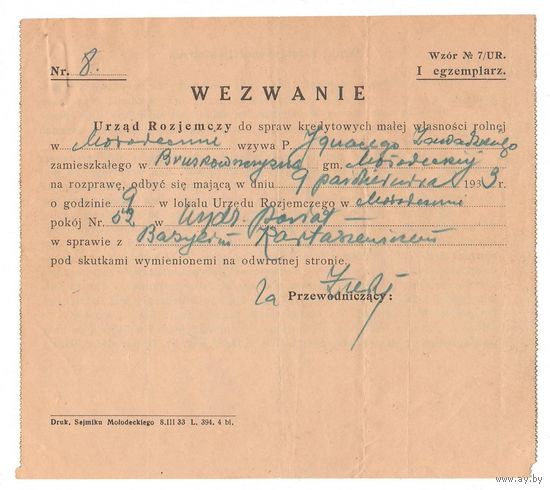 Wzór № 7/UR.
Nr. 8. I egzemplarz.
WEZWANIE
Urząd Rozjemczy do spraw kredytowych małej własności rolnej
w Mołodecznie wzywa P. Ignacego
zamieszkałego w gm. Mołodeckiej
na rozprawę, odbyć się mającą w dniu 9 października 1933 r.
o godzinie 9 w lokalu Urzędu Rozjemczego w Mołodecznie
pokój Nr. 52 w
w sprawie z Bazylim Kartaszewiczem
pod skutkami wymienionemi na odwrotnej stronie.
za Przewodniczący:
Druk. Sejmiku Mołodeckiego 8.III 33 L. 394. 4 bl.
www.ay.by